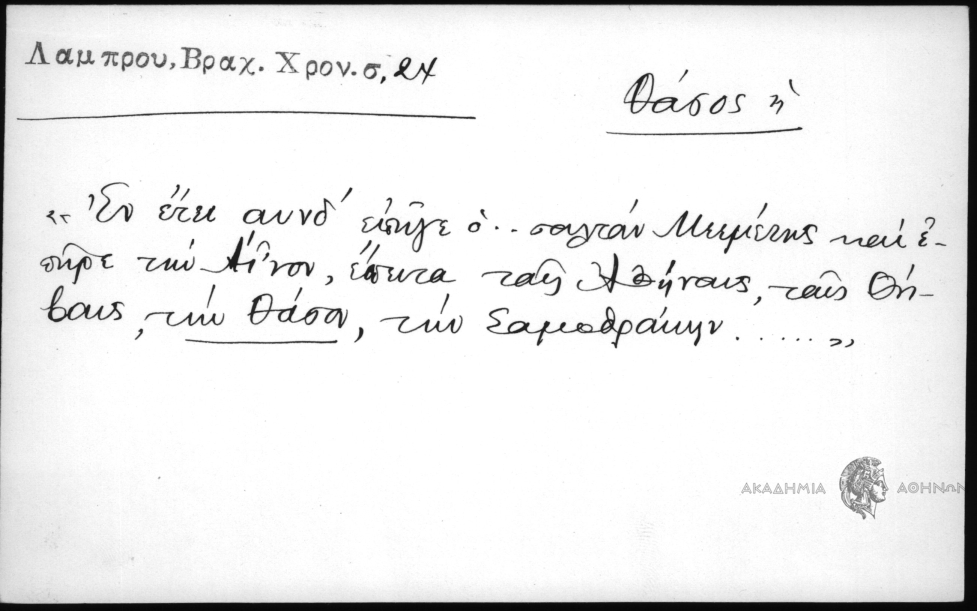 Λαμπρου, Βραχ. Χρον. σ, 24
Θάσος ἡ
«Ἐν ἔτει αυνδ' ἐπῆγε ὁ .. σουλτάν Μεεμέτης καί ἐ-
πῆρε τήν Αἶνον, ἔπειτα ταῖς Ἀθήναις, ταῖς Θή-
βαις, τήν Θάσον, τήν Σαμοθράκην ......»
ΑΚΑΔΗΜΙΑ ΑΘΗΝΩΝ